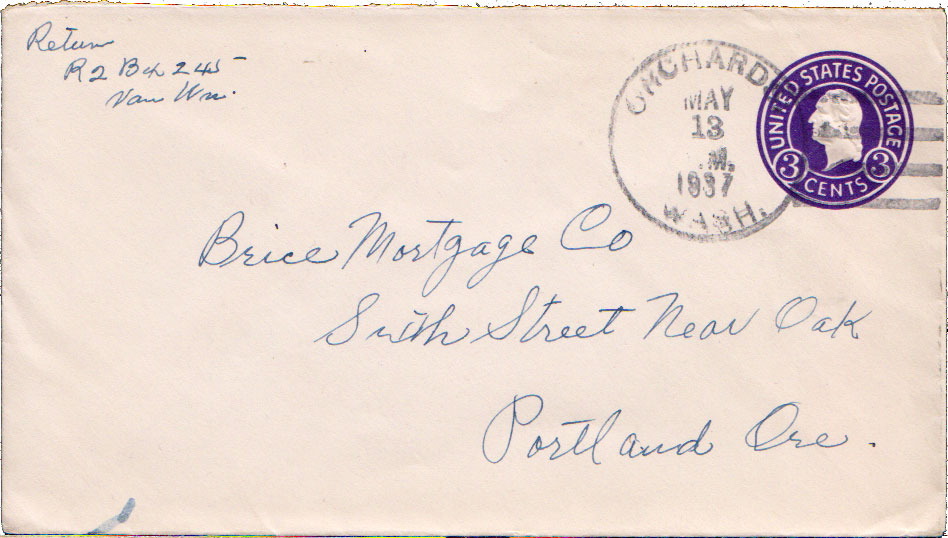 Return
R2 Bx 245
Van Wn.
ORCHARDS
MAY
13
.M.
1937
WASH.
UNITED STATES POSTAGE
3 CENTS 3
Brice Mortgage Co
Sixth Street Near Oak
Portland Ore.